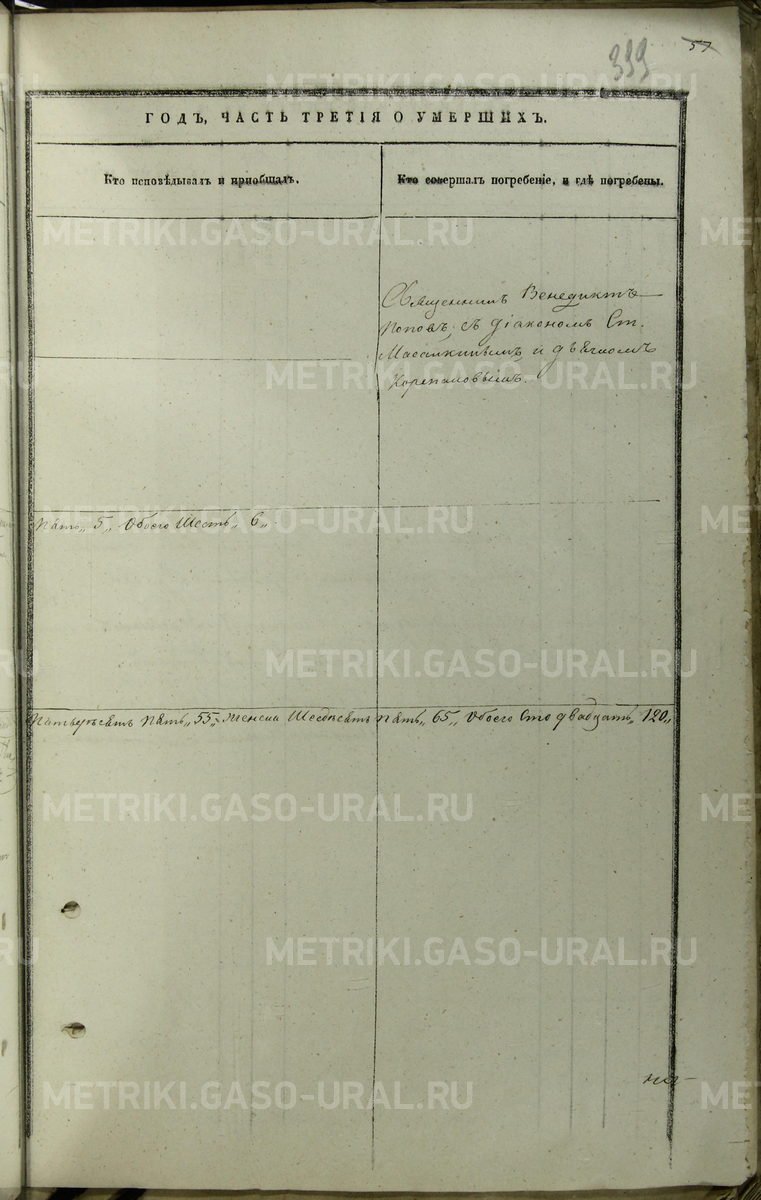 399 57
ГОДЪ, ЧАСТЬ ТРЕТІЯ О УМЕРШИХЪ.
Кто исповѣдывалъ и приобщалъ.
Кто совершалъ погребеніе, и гдѣ погребены.
Священникъ Венедиктъ
Поповъ съ діакономъ Ст.
и дьячкомъ
Корепановымъ.
Пять,, 5,, Обоего Шесть,, 6,,
Пятьдесятъ Пять,, 55,, Женска Шесдесятъ пять,, 65,, Обоего Сто двадцать,, 120,,
METRIKI.GASO-URAL.RU